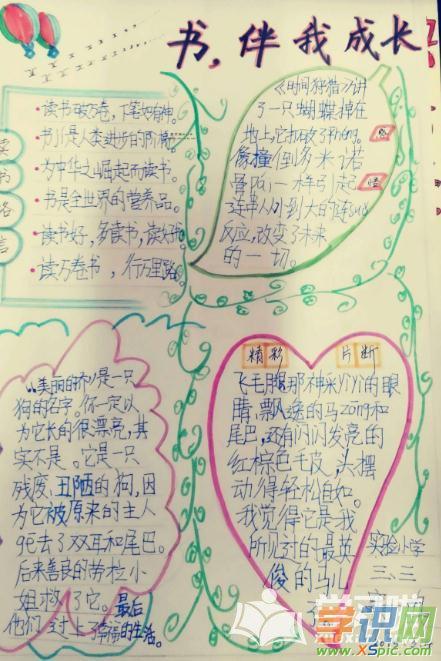 书，伴我成长
读
书
名
言
读书破万卷，下笔如有神。
书是人类进步的阶梯。
为中华之崛起而读书。
书是全世界的营养品。
读书好，多读书，读好书。
读万卷书，行万里路。
《时间狩猎》讲
了一只蝴蝶掉在
地上，它打破了
像撞倒多米诺
骨牌一样引起
连串从小到大的连suo
反应，改变了未来
的一切。
感
悟
美丽的 是一只
狗的名字。你一定以
为它长的很漂亮，其
实不是。它是一只
残废、丑陋的狗，因
为它被原来的主人
去了双耳和尾巴。
后来善良的劳拉小
姐 了它。最后
他们过上了幸福的生活。
精彩
片断
飞毛腿那神采yìyì的眼
睛，飘逸的马zōng和
尾巴，还有闪闪发亮的
红棕色毛皮，头摆
动得轻松自如。
我觉得它是我
所见过的最英
俊的马儿
实验小学
三、三
学识网
www.XSpic.com